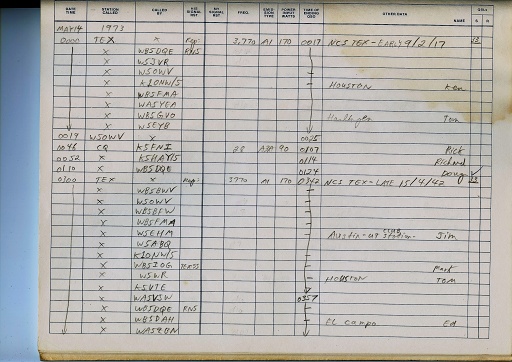 DATE TIME STATION CALLED CALLED BY HIS SIGNAL RST MY SIGNAL RST FREQ. EMIS- SION TYPE POWER INPUT WATTS TIME OF ENDING QSO OTHER DATA NAME QSL S R
MAY 14 1973
0000 TEX X Rep: 3,770 A1 170 0017 NCS TEX - EARLY 9/2/17
X WB5DQE RN5
X W5JVR
X W5OWV
X K1ONW/5 HOUSTON Ken
X WB5FMA
X WA5YEA
X WB5GVO Harlingen Tom
X W5EYB
0019 W5OWV X 0025
0046 CQ K5FNI 28 A3A 90 0107 Rick
0052 X 0114 Richard
0110 X WB5DQE 0124 Doug
0300 TEX X Rep: 3770 A1 170 0342 NCS TEX - LATE 15/4/42
X WB5BWV
X W5OWV
X WB5BFW
X WB5FMA
X W5EHM Austin - club Station - Jim
X W5ABQ
X K1ONW/5
X WB5IOG
X W5WR HOUSTON TOM
X K5VTE
X WA5VSW 0357
X WB5DQE RN5
X WB5DAH El Campo Ed
X